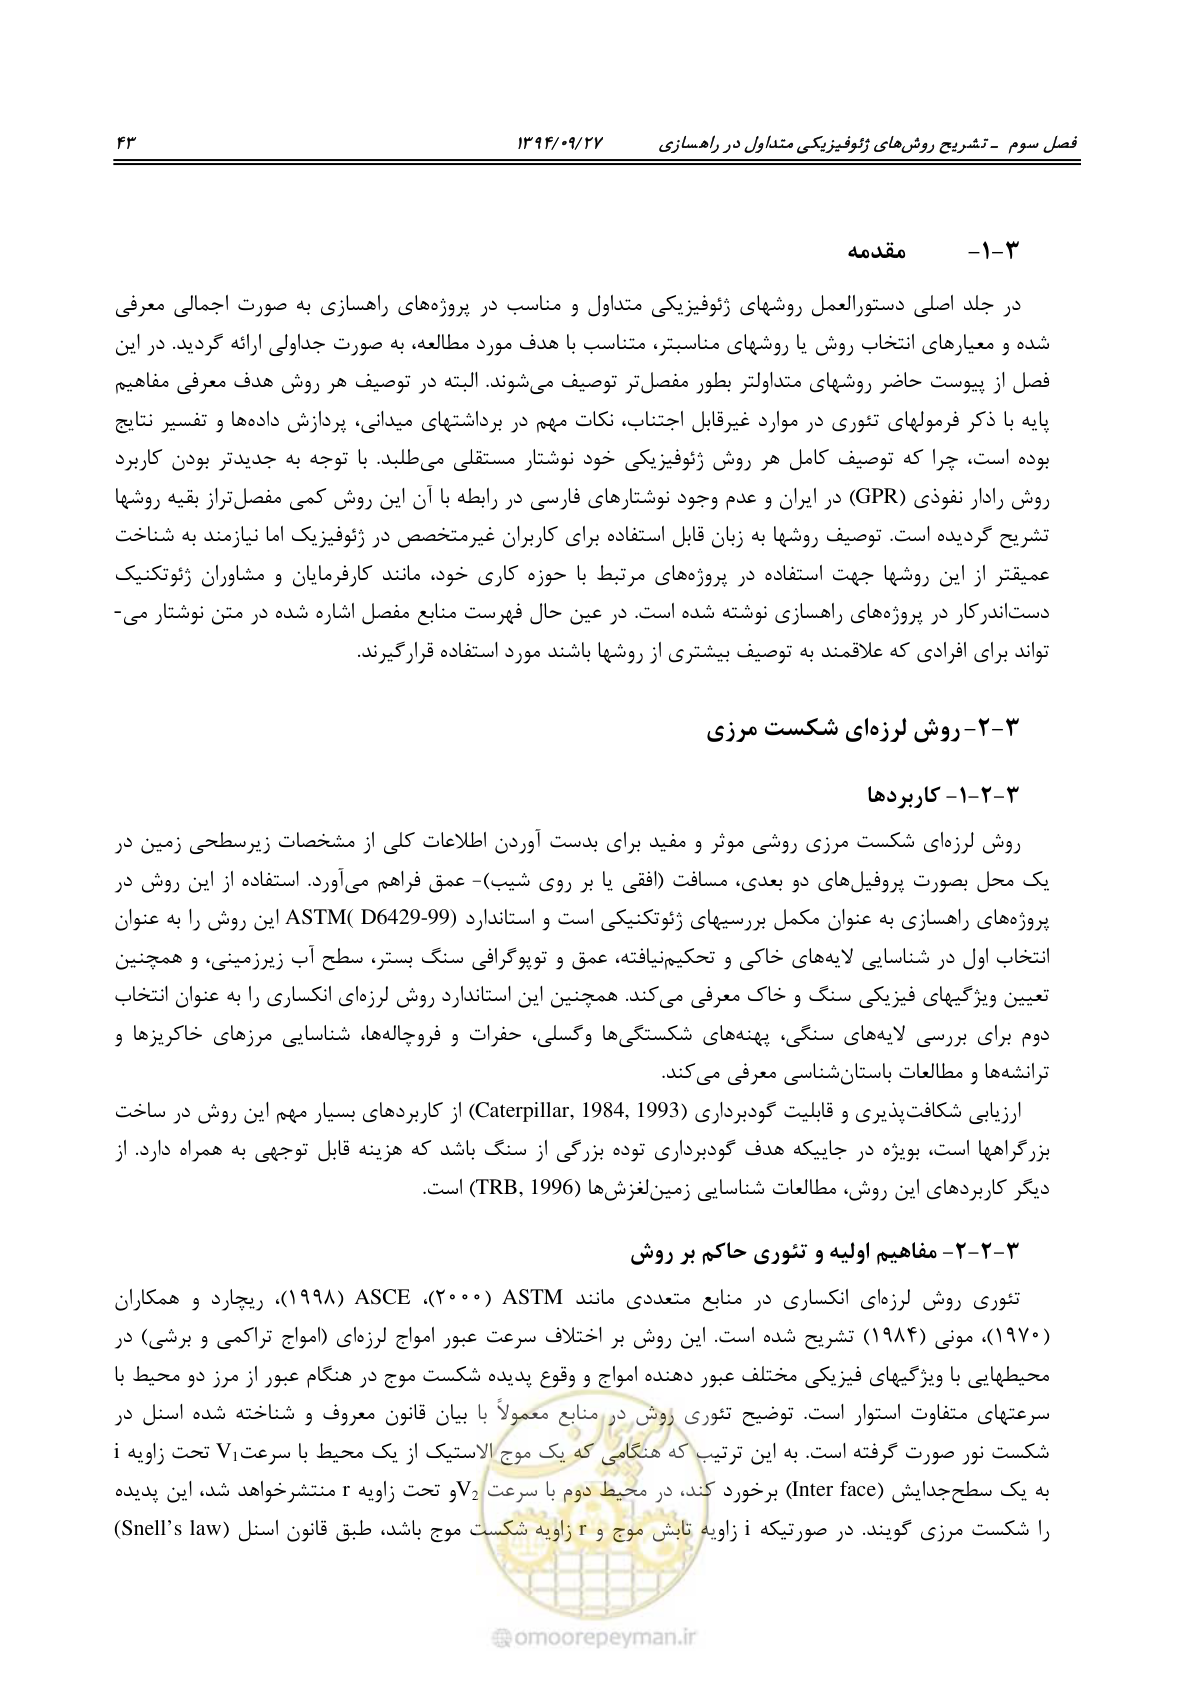 فصل سوم ـ تشریح روش‌های ژئوفیزیکی متداول در راهسازی ۱۳۹۴/۰۹/۲۷ ۴۳
۳-۱- مقدمه
در جلد اصلی دستورالعمل روشهای ژئوفیزیکی متداول و مناسب در پروژه‌های راهسازی به صورت اجمالی معرفی
شده و معیارهای انتخاب روش یا روشهای مناسبتر، متناسب با هدف مورد مطالعه، به صورت جداولی ارائه گردید. در این
فصل از پیوست حاضر روشهای متداولتر بطور مفصل‌تر توصیف می‌شوند. البته در توصیف هر روش هدف معرفی مفاهیم
پایه با ذکر فرمولهای تئوری در موارد غیرقابل اجتناب، نکات مهم در برداشتهای میدانی، پردازش داده‌ها و تفسیر نتایج
بوده است، چرا که توصیف کامل هر روش ژئوفیزیکی خود نوشتار مستقلی می‌طلبد. با توجه به جدیدتر بودن کاربرد
روش رادار نفوذی (GPR) در ایران و عدم وجود نوشتارهای فارسی در رابطه با آن این روش کمی مفصل‌تراز بقیه روشها
تشریح گردیده است. توصیف روشها به زبان قابل استفاده برای کاربران غیرمتخصص در ژئوفیزیک اما نیازمند به شناخت
عمیقتر از این روشها جهت استفاده در پروژه‌های مرتبط با حوزه کاری خود، مانند کارفرمایان و مشاوران ژئوتکنیک
دست‌اندرکار در پروژه‌های راهسازی نوشته شده است. در عین حال فهرست منابع مفصل اشاره شده در متن نوشتار می-
تواند برای افرادی که علاقمند به توصیف بیشتری از روشها باشند مورد استفاده قرارگیرند.
۳-۲- روش لرزه‌ای شکست مرزی
۳-۲-۱- کاربردها
روش لرزه‌ای شکست مرزی روشی موثر و مفید برای بدست آوردن اطلاعات کلی از مشخصات زیرسطحی زمین در
یک محل بصورت پروفیل‌های دو بعدی، مسافت (افقی یا بر روی شیب)- عمق فراهم می‌آورد. استفاده از این روش در
پروژه‌های راهسازی به عنوان مکمل بررسیهای ژئوتکنیکی است و استاندارد ASTM( D6429-99) این روش را به عنوان
انتخاب اول در شناسایی لایه‌های خاکی و تحکیم‌نیافته، عمق و توپوگرافی سنگ بستر، سطح آب زیرزمینی، و همچنین
تعیین ویژگیهای فیزیکی سنگ و خاک معرفی می‌کند. همچنین این استاندارد روش لرزه‌ای انکساری را به عنوان انتخاب
دوم برای بررسی لایه‌های سنگی، پهنه‌های شکستگی‌ها وگسلی، حفرات و فروچاله‌ها، شناسایی مرزهای خاکریزها و
ترانشه‌ها و مطالعات باستان‌شناسی معرفی می‌کند.
ارزیابی شکافت‌پذیری و قابلیت گودبرداری (Caterpillar, 1984, 1993) از کاربردهای بسیار مهم این روش در ساخت
بزرگراهها است، بویژه در جاییکه هدف گودبرداری توده بزرگی از سنگ باشد که هزینه قابل توجهی به همراه دارد. از
دیگر کاربردهای این روش، مطالعات شناسایی زمین‌لغزش‌ها (TRB, 1996) است.
۳-۲-۲- مفاهیم اولیه و تئوری حاکم بر روش
تئوری روش لرزه‌ای انکساری در منابع متعددی مانند ASTM (۲۰۰۰)، ASCE (۱۹۹۸)، ریچارد و همکاران
(۱۹۷۰)، مونی (۱۹۸۴) تشریح شده است. این روش بر اختلاف سرعت عبور امواج لرزه‌ای (امواج تراکمی و برشی) در
محیطهایی با ویژگیهای فیزیکی مختلف عبور دهنده امواج و وقوع پدیده شکست موج در هنگام عبور از مرز دو محیط با
سرعتهای متفاوت استوار است. توضیح تئوری روش در منابع معمولاً با بیان قانون معروف و شناخته شده اسنل در
شکست نور صورت گرفته است. به این ترتیب که هنگامی که یک موج الاستیک از یک محیط با سرعت V₁ تحت زاویه i
به یک سطح‌جدایش (Inter face) برخورد کند، در محیط دوم با سرعت V₂و تحت زاویه r منتشرخواهد شد، این پدیده
را شکست مرزی گویند. در صورتیکه i زاویه تابش موج و r زاویه شکست موج باشد، طبق قانون اسنل (Snell's law)
omoorepeyman.ir